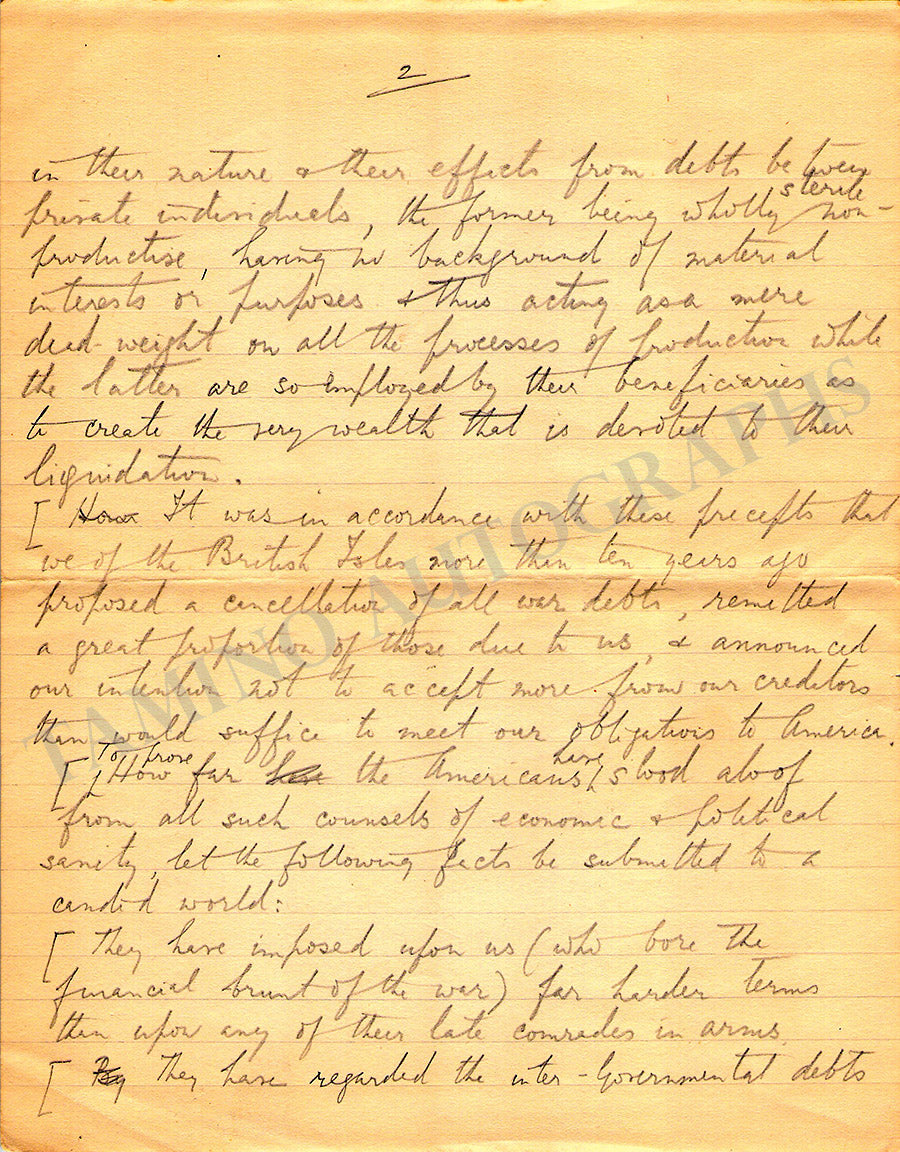 2
in their nature & their effects from debts between
private individuels, the former being wholly sterile non-
productive, having no background of material
interests or purposes & thus acting as a mere
dead-weight on all the processes of production while
the latter are so employed by their beneficiaries as
to create the very wealth that is devoted to their
liquidation.
[ How It was in accordance with these precepts that
we of the British Isles more than ten years ago
proposed a cancellation of all war debts, remitted
a great proportion of those due to us, & announced
our intention not to accept more from our creditors
than would suffice to meet our obligations to America.
[ To prove How far have the Americans have stood aloof
from all such counsels of economic & political
sanity, let the following facts be submitted to a
candid world:
[ They have imposed upon us (who bore the
financial brunt of the war) far harder terms
than upon any of their late comrades in arms
[ By They have regarded the inter-Governmental debts
TAMINO AUTOGRAPHS